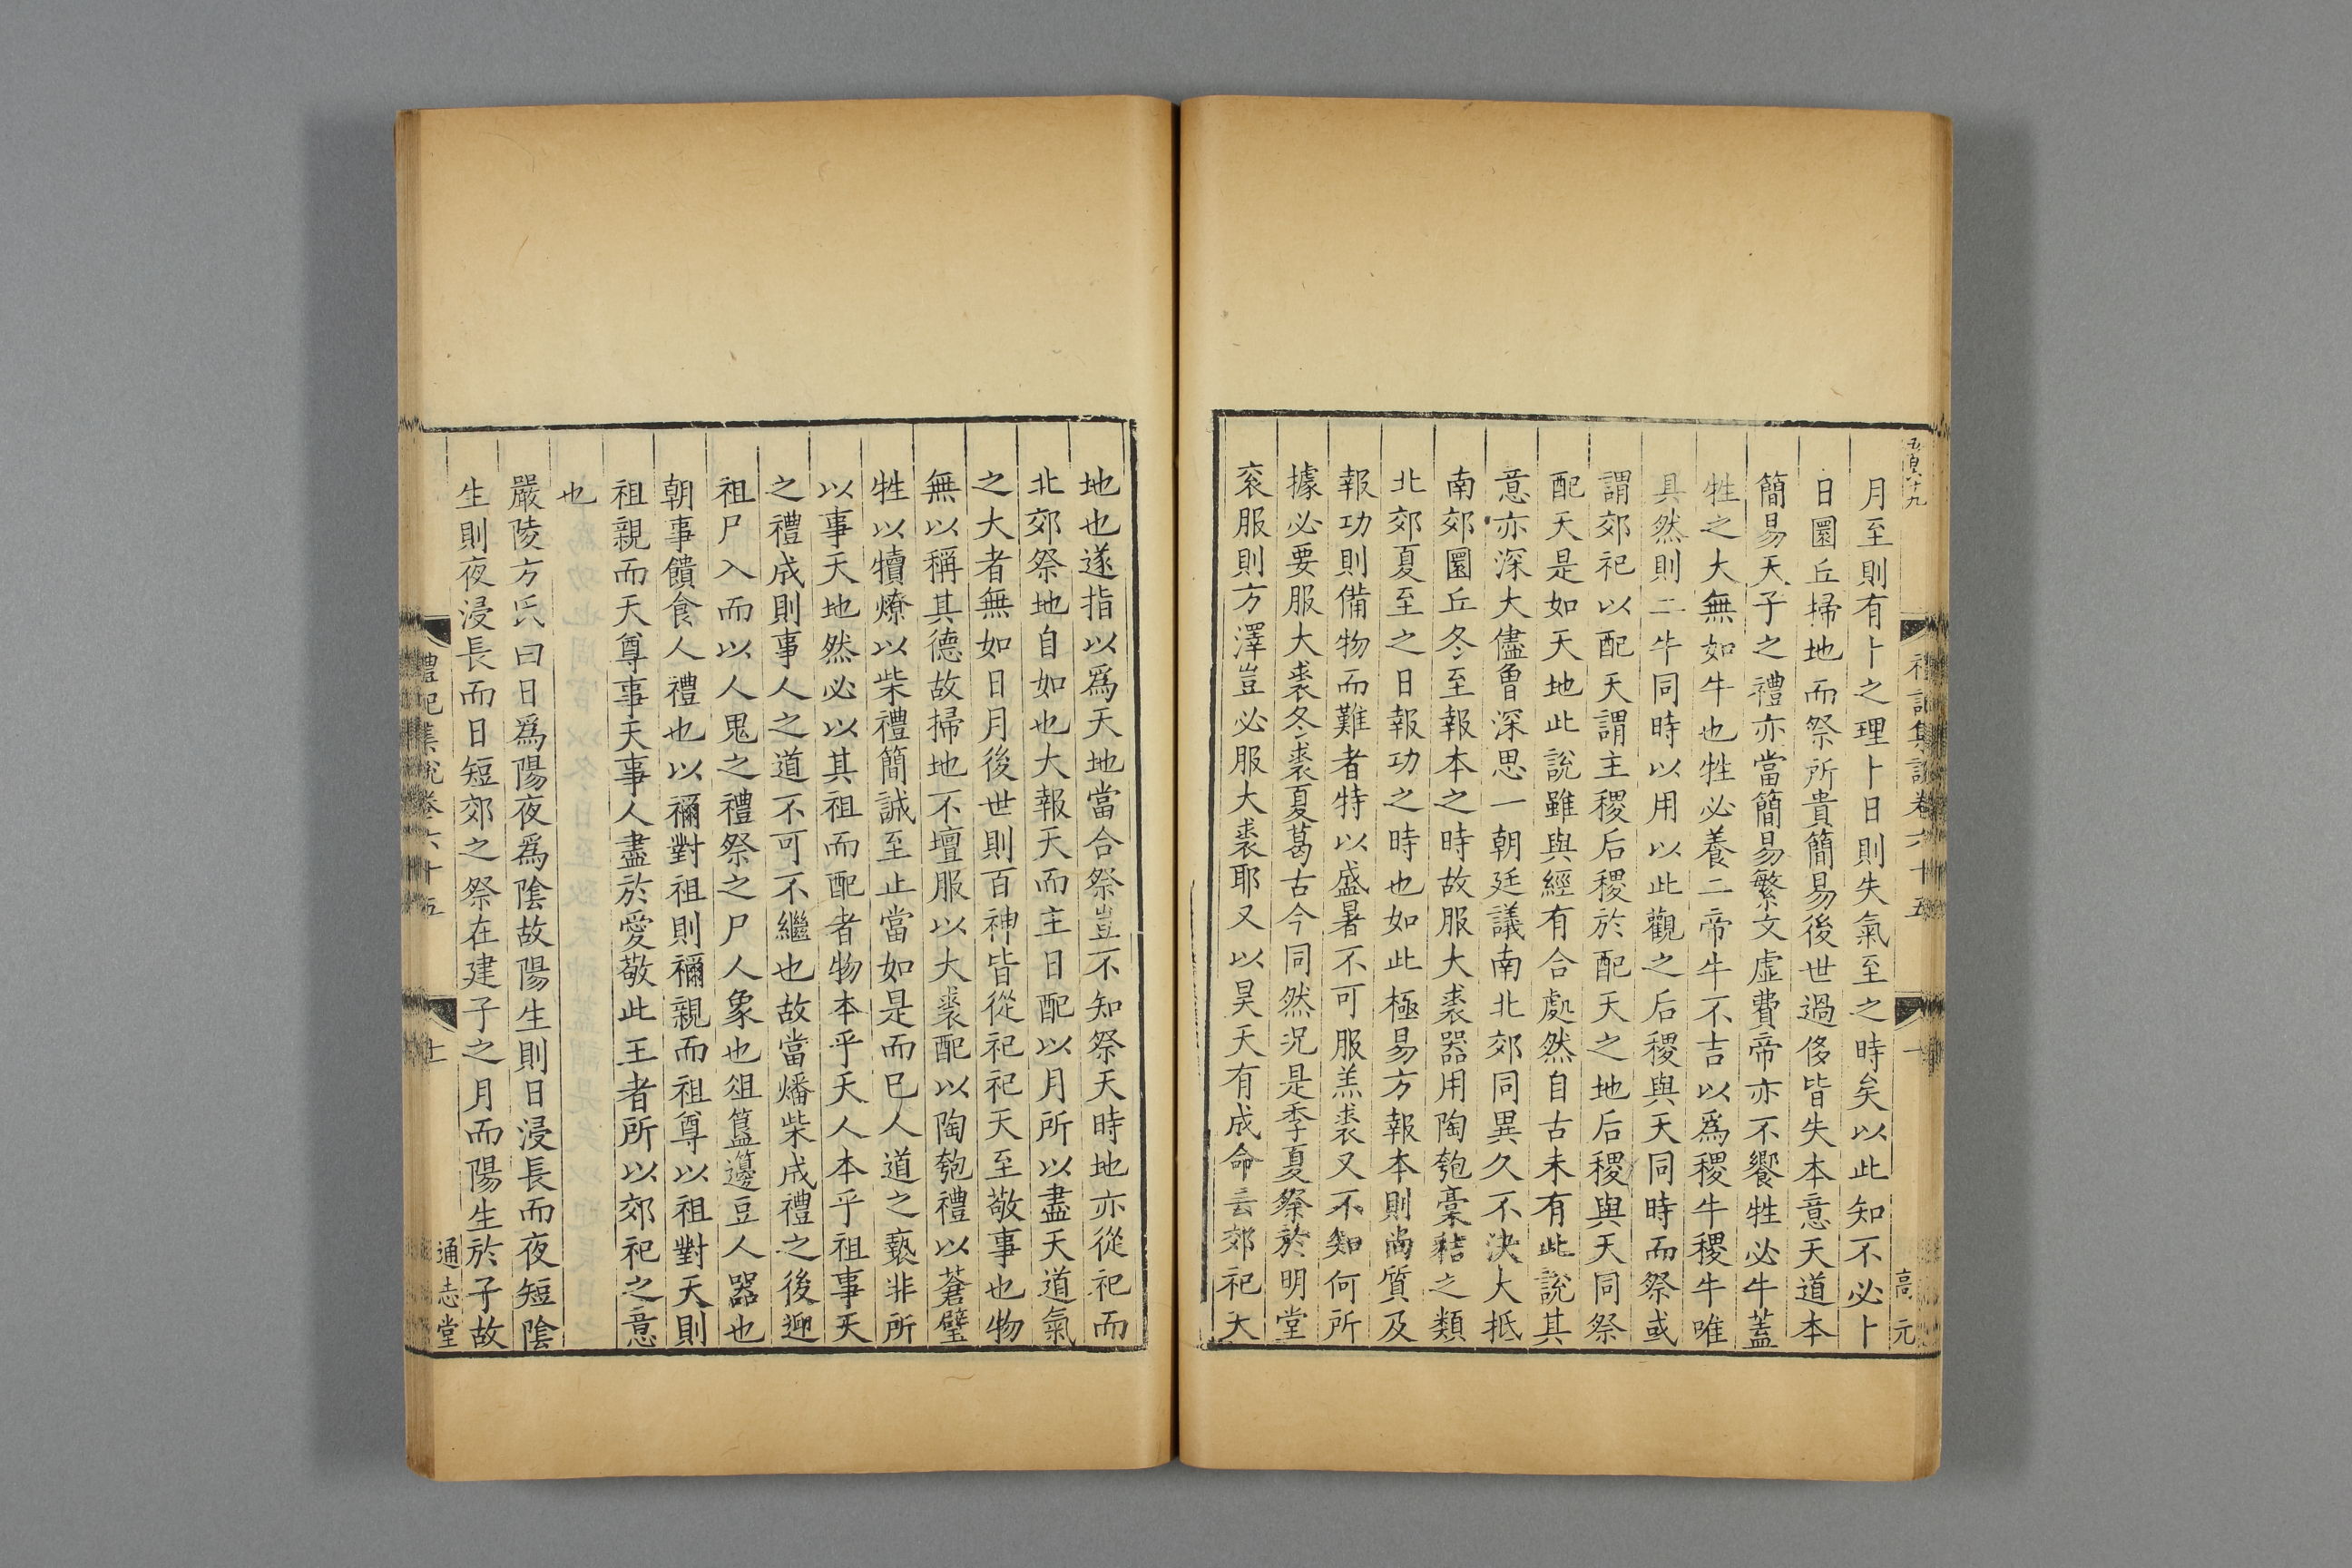 月至則有卜之理卜日則失氣至之時矣以此知不必卜
日圜丘掃地而祭所貴簡易後世過侈皆失本意天道本
簡易天子之禮亦當簡易繁文虛費帝亦不饗牲必牛蓋
牲之大無如牛也牲必養二帝牛不吉以爲稷牛稷牛唯
具然則二牛同時以用以此觀之后稷與天同時而祭或
謂郊祀以配天謂主稷后稷於配天之地后稷與天同祭
配天是如天地此說雖與經有合處然自古未有此說其
意亦深大儘魯深思一朝廷議南北郊同異久不決大抵
南郊圜丘冬至報本之時故服大裘器用陶匏藁秸之類
北郊夏至之日報功之時也如此極易方報本則尚質及
報功則備物而難者特以盛暑不可服羔裘又不知何所
據必要服大裘冬裘夏葛古今同然況是季夏祭於明堂
衮服則方澤豈必服大裘耶又以昊天有成命云郊祀天
地也遂指以爲天地當合祭豈不知祭天時地亦從祀而
北郊祭地自如也大報天而主日配以月所以盡天道氣
之大者無如日月後世則百神皆從祀祀天至敬事也物
無以稱其德故掃地不壇服以大裘配以陶匏禮以蒼璧
牲以犢燎以柴禮簡誠至止當如是而巳人道之褻非所
以事天地然必以其祖而配者物本乎天人本乎祖事天
之禮成則事人之道不可不繼也故當燔柴成禮之後迎
祖尸入而以人鬼之禮祭之尸人象也俎簋籩豆人器也
朝事饋食人禮也以禰對祖則禰親而祖尊以祖對天則
祖親而天尊事天事人盡於愛敬此王者所以郊祀之意
也
嚴陵方氏曰日爲陽夜爲陰故陽生則日浸長而夜短陰
生則夜浸長而日短郊之祭在建子之月而陽生於子故
禮記集說卷六十五
十一
通志堂